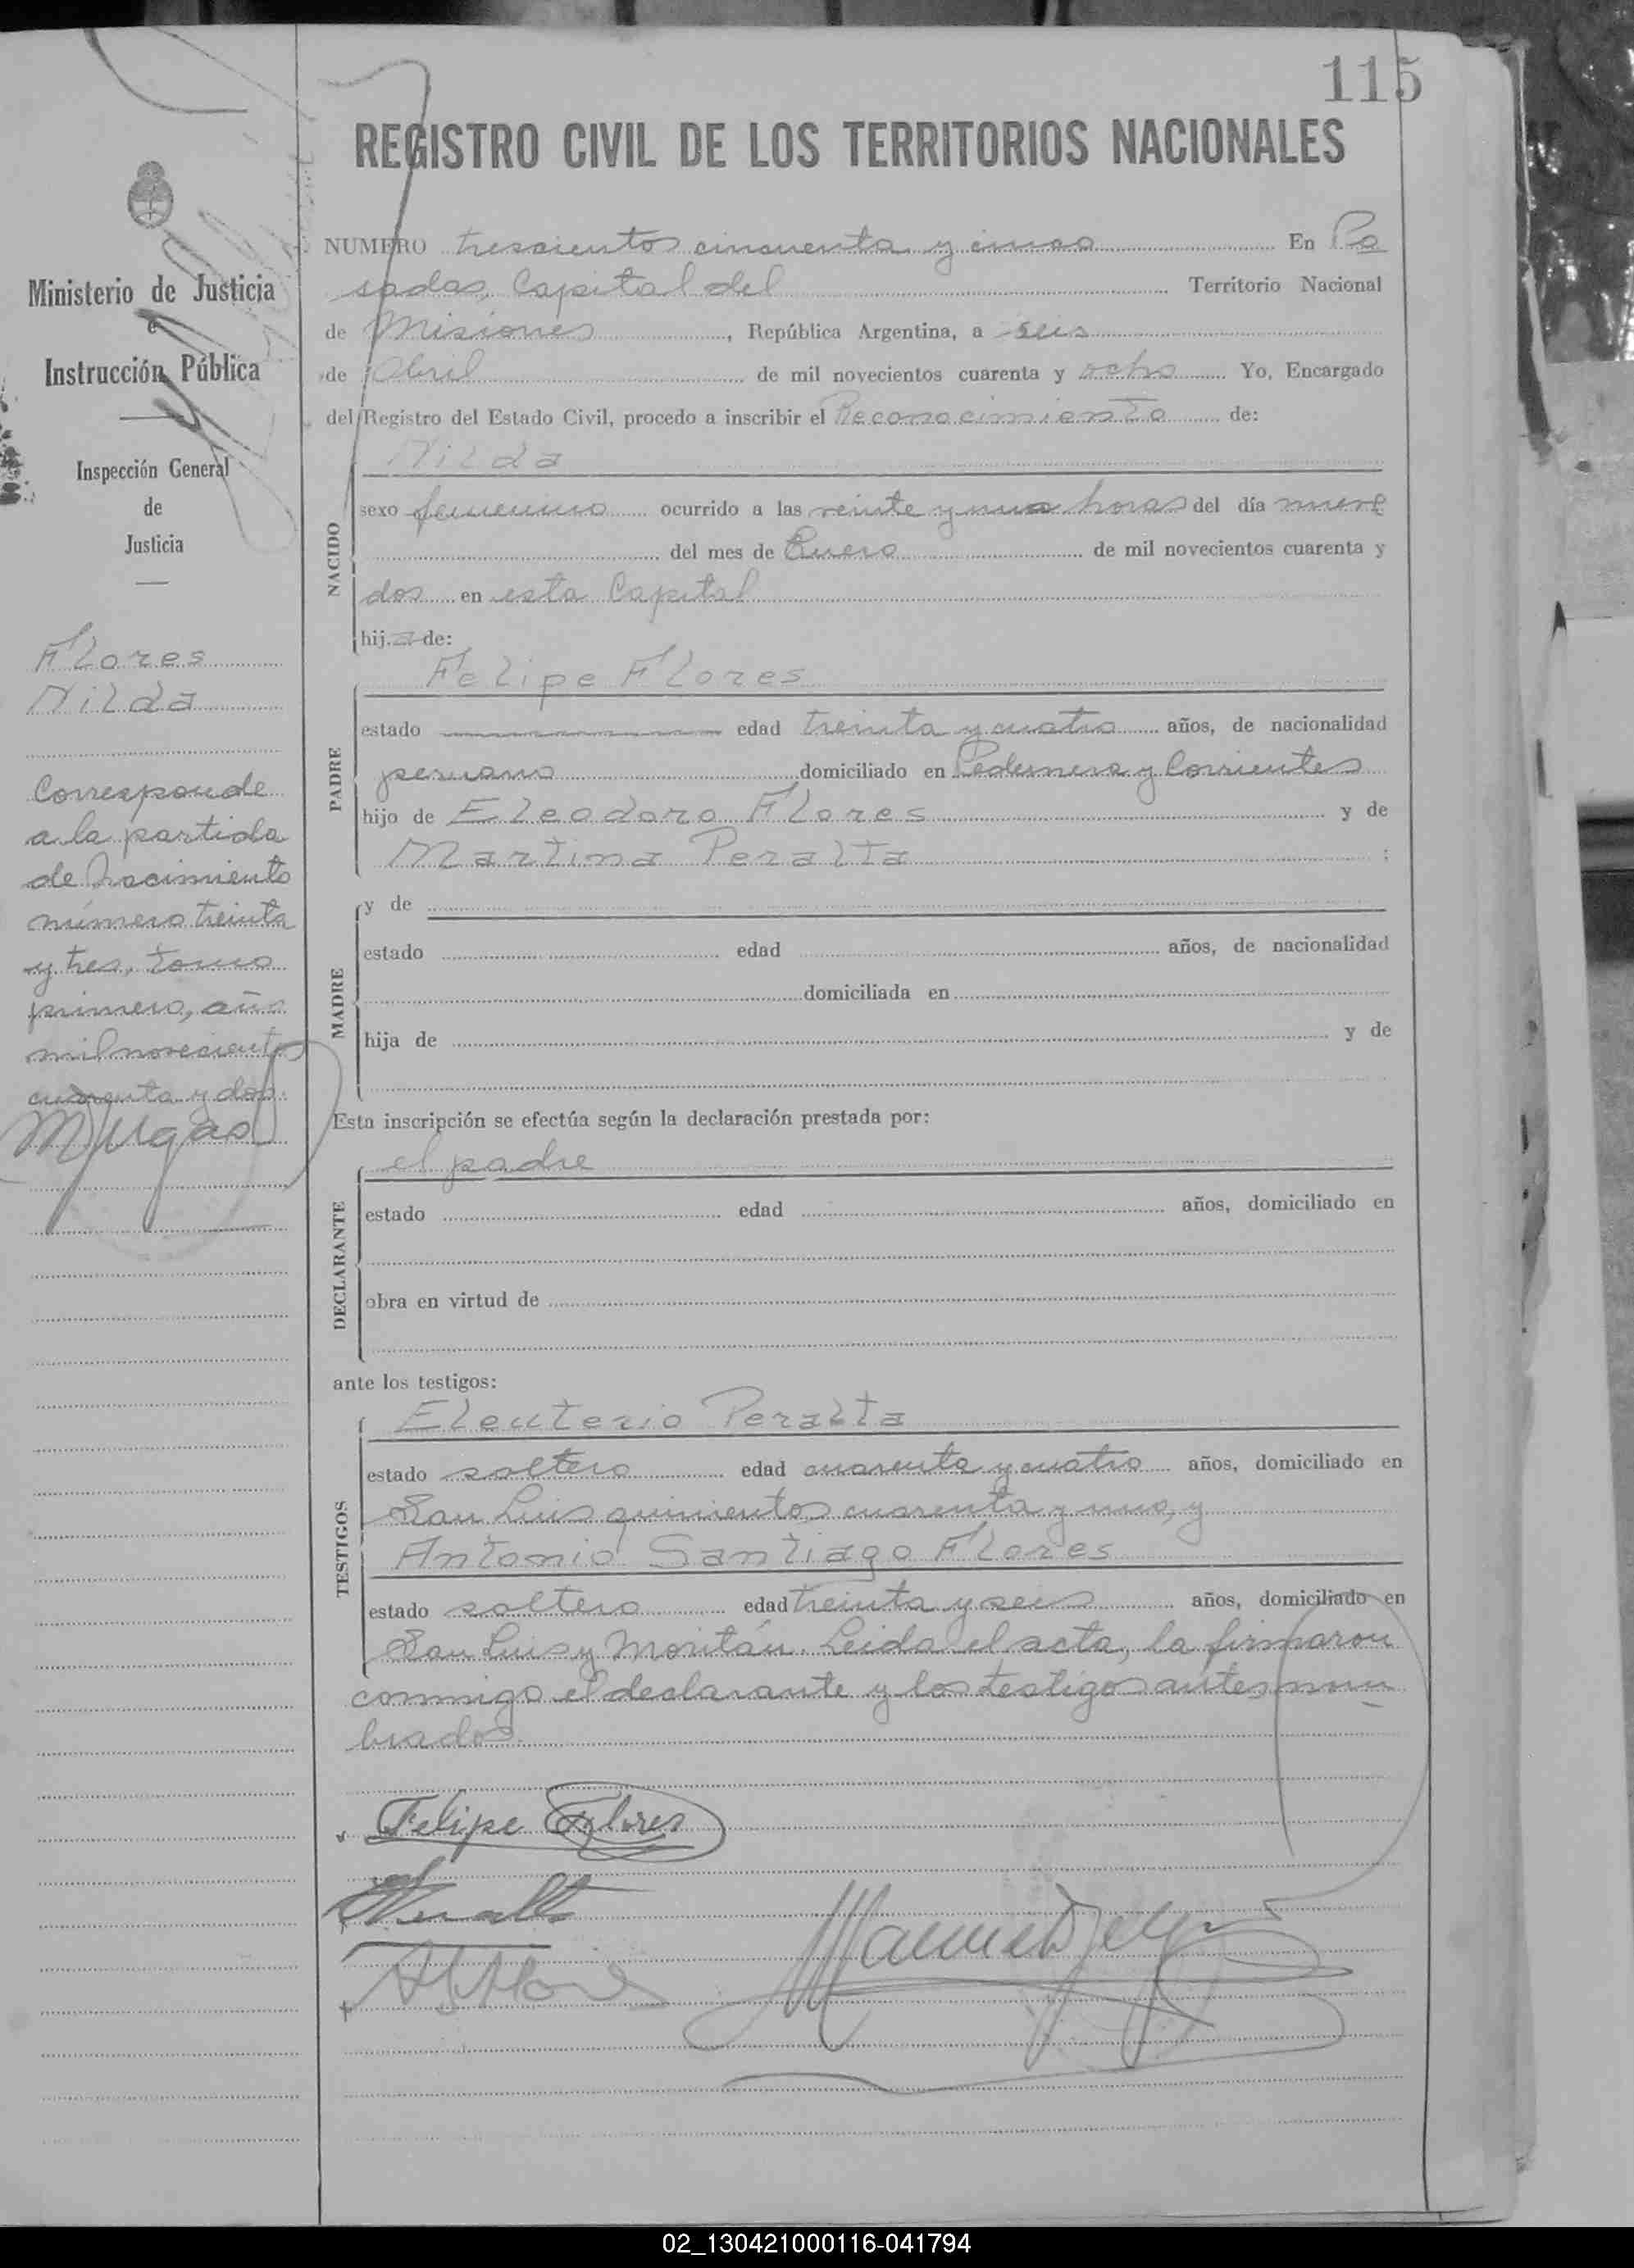 115
REGISTRO CIVIL DE LOS TERRITORIOS NACIONALES
Ministerio de Justicia
e
Instrucción Pública
Inspección General
de
Justicia
Flores
Nilda
Corresponde
a la partida
de nacimiento
número treinta
y tres, tomo
primero, año
mil novecientos
cuarenta y dos.
NUMERO trescientos cincuenta y cinco En Po
sadas, Capital del Territorio Nacional
de Misiones, República Argentina, a seis
de Abril de mil novecientos cuarenta y ocho Yo, Encargado
del Registro del Estado Civil, procedo a inscribir el Reconocimiento de:
NACIDO
Nilda
sexo femenino ocurrido a las veinte y una horas del día nueve
del mes de Enero de mil novecientos cuarenta y
dos en esta Capital
hij a de:
PADRE
Felipe Flores
estado edad treinta y cuatro años, de nacionalidad
peruano domiciliado en Pedernera y Corrientes
hijo de Eleodoro Flores y de
Martina Peralta ;
MADRE
y de
estado edad años, de nacionalidad
domiciliada en
hija de y de
Esta inscripción se efectúa según la declaración prestada por:
DECLARANTE
el padre
estado edad años, domiciliado en
obra en virtud de
ante los testigos:
TESTIGOS
Eleuterio Peralta
estado soltero edad cuarenta y cuatro años, domiciliado en
San Luis quinientos cuarenta y uno, y
Antonio Santiago Flores
estado soltero edad treinta y seis años, domiciliado en
San Luis y Moritán. Leida el acta, la firmaron
conmigo el declarante y los testigos antes nom
brados.
Felipe Flores
02_130421000116-041794